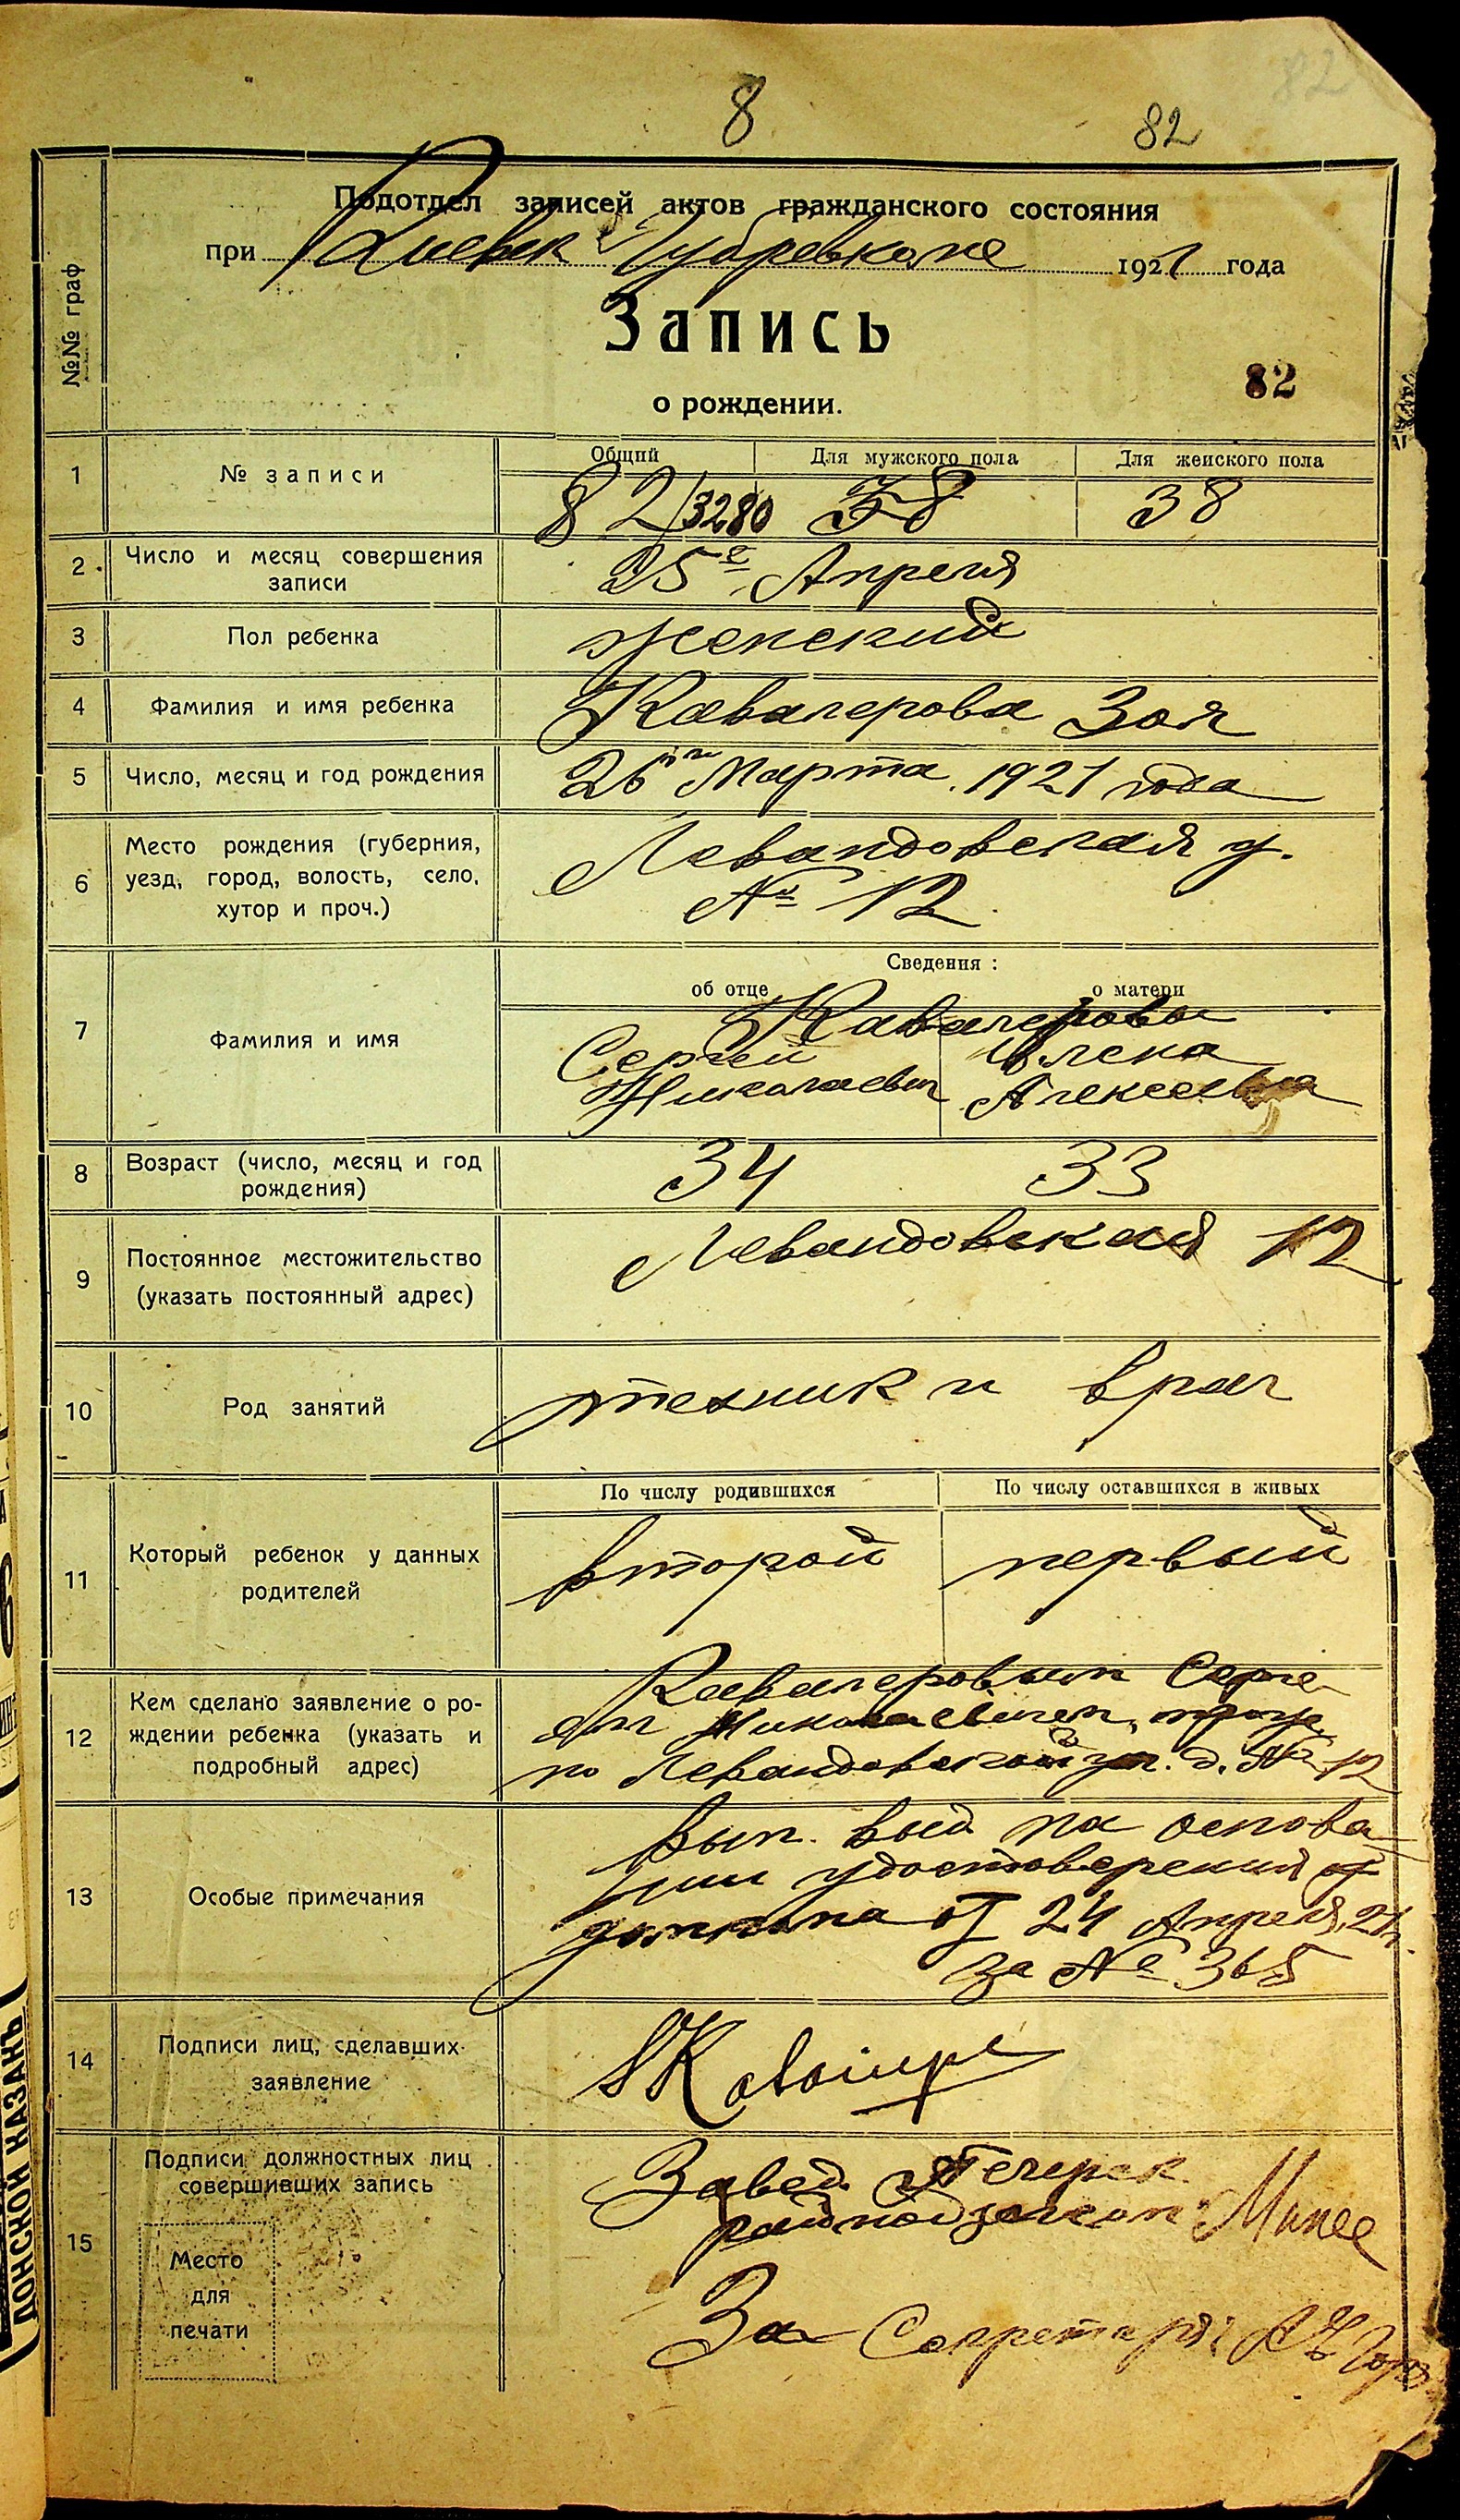 82
8
82
Подотдел записей актов гражданского состояния
при Киевск Губревкоме 1921 года
№№ граф
Запись
о рождении.
82
1
№ записи
Общий
Для мужского пола
Для женского пола
82/3280
38
38
2
Число и месяц совершения
записи
25е Апреля
3
Пол ребенка
Женский
4
Фамилия и имя ребенка
Кавалерова Зоя
5
Число, месяц и год рождения
26го Марта 1921 года
6
Место рождения (губерния,
уезд, город, волость, село,
хутор и проч.)
Левандовская у.
№ 12
7
Фамилия и имя
Сведения:
об отце
о матери
Кавалеровы
Сергей
Елена
Николаевич
Алексеевна
8
Возраст (число, месяц и год
рождения)
34
33
9
Постоянное местожительство
(указать постоянный адрес)
Левандовская 12
10
Род занятий
техник и врач
11
Который ребенок у данных
родителей
По числу родившихся
По числу оставшихся в живых
второй
первый
12
Кем сделано заявление о ро-
ждении ребенка (указать и
подробный адрес)
Кавалеровым Серге-
ем Николаевичем, прож
по Левандовской ул. д. № 12
13
Особые примечания
Вып. выд на основа-
нии удостоверения
домкома от 24 Апреля 21г.
за № 365
14
Подписи лиц, сделавших
заявление
15
Подписи должностных лиц
совершивших запись
Место
для
печати
Завед. Печерск
За Секретаря:
ДОНСКОЙ КАЗАКЪ